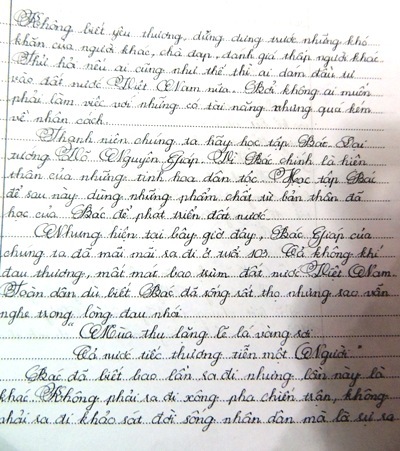 Không biết yêu thương, dửng dưng trước những khó
khăn của người khác, chà đạp, đánh giá thấp người khác.
Thử hỏi nếu ai cũng như thế thì ai dám đầu tư
vào đất nước Việt Nam nữa. Bởi không ai muốn
phải làm việc với những có tài năng nhưng quá kém
về nhân cách.
Thanh niên chúng ta hãy học tập Bác. Đại
tướng Võ Nguyên Giáp. Vì Bác chính là hiện
thân của những tinh hoa dân tộc. Học tập Bác
để sau này dùng những phẩm chất từ bản thân đã
học của Bác để phát triển đất nước.
Nhưng hiện tại bây giờ đây, Bác Giáp của
chúng ta đã mãi mãi ra đi ở tuổi 103. Cả không khí
đau thương, mất mát bao trùm đất nước Việt Nam.
Toàn dân dù biết Bác đã sống rất thọ nhưng sao vẫn
nghe trong lòng đau nhói
"Mùa thu lặng lẽ lá vàng rơi
Cả nước tiếc thương tiễn một Người"
Bác đã biết bao lần ra đi nhưng lần này là
khác. Không phải ra đi xông pha chiến trận, không
phải ra đi khảo sát đời sống nhân dân mà là sự ra